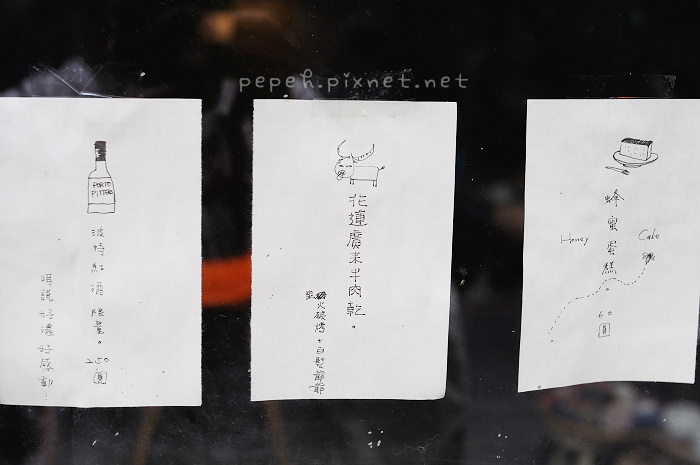 pepeh.pixnet.net
PORTO
PITTERS
波特紅酒 限量。
250
圓
明說好濃好感動!
花蓮廣來牛肉乾。
炭火碳烤+白髮爺爺
蜂蜜蛋糕。
Honey
Cake
60
圓